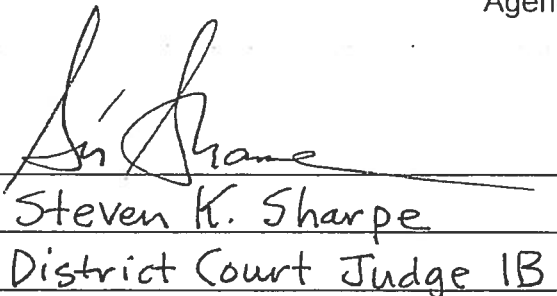 Agen
Steven K. Sharpe
District Court Judge 1B